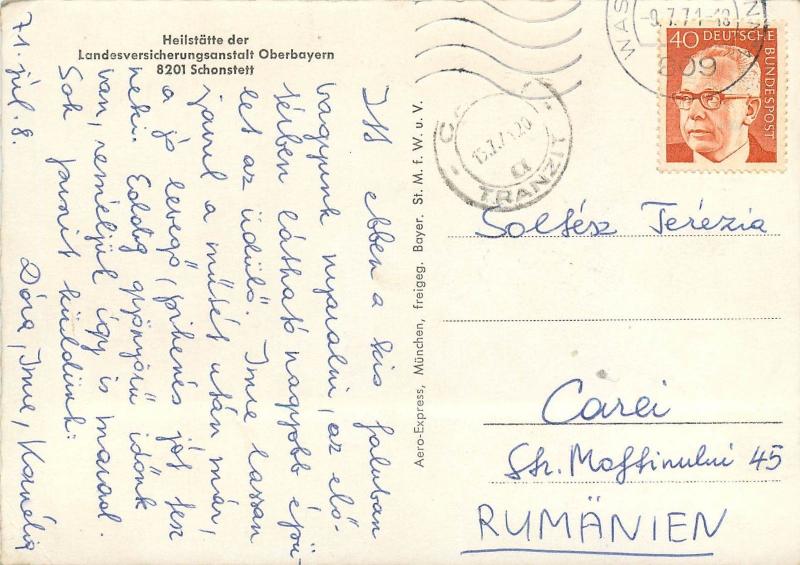 Heilstätte der
Landesversicherungsanstalt Oberbayern
8201 Schonstett
71. júl. 8.
Itt ebben a kis faluban
vagyunk nyaralni, az elő-
térben látható nagyobb épü-
let az üdülő. Imre lassan
javul a műtét után már,
a jó levegő, pihenés jót tesz
neki. Eddig gyönyörű időnk
van, reméljük így is marad.
Sok puszit küldünk:
Dóra, Imre, Kornélia
Aero-Express, München, freigeg. Bayer. St. M. f. W. u. V.
TRANZIT
WAS
809
40 DEUTSCHE
BUNDESPOST
Soltész Terézia
Carei
Str. Moftinului 45
RUMÄNIEN